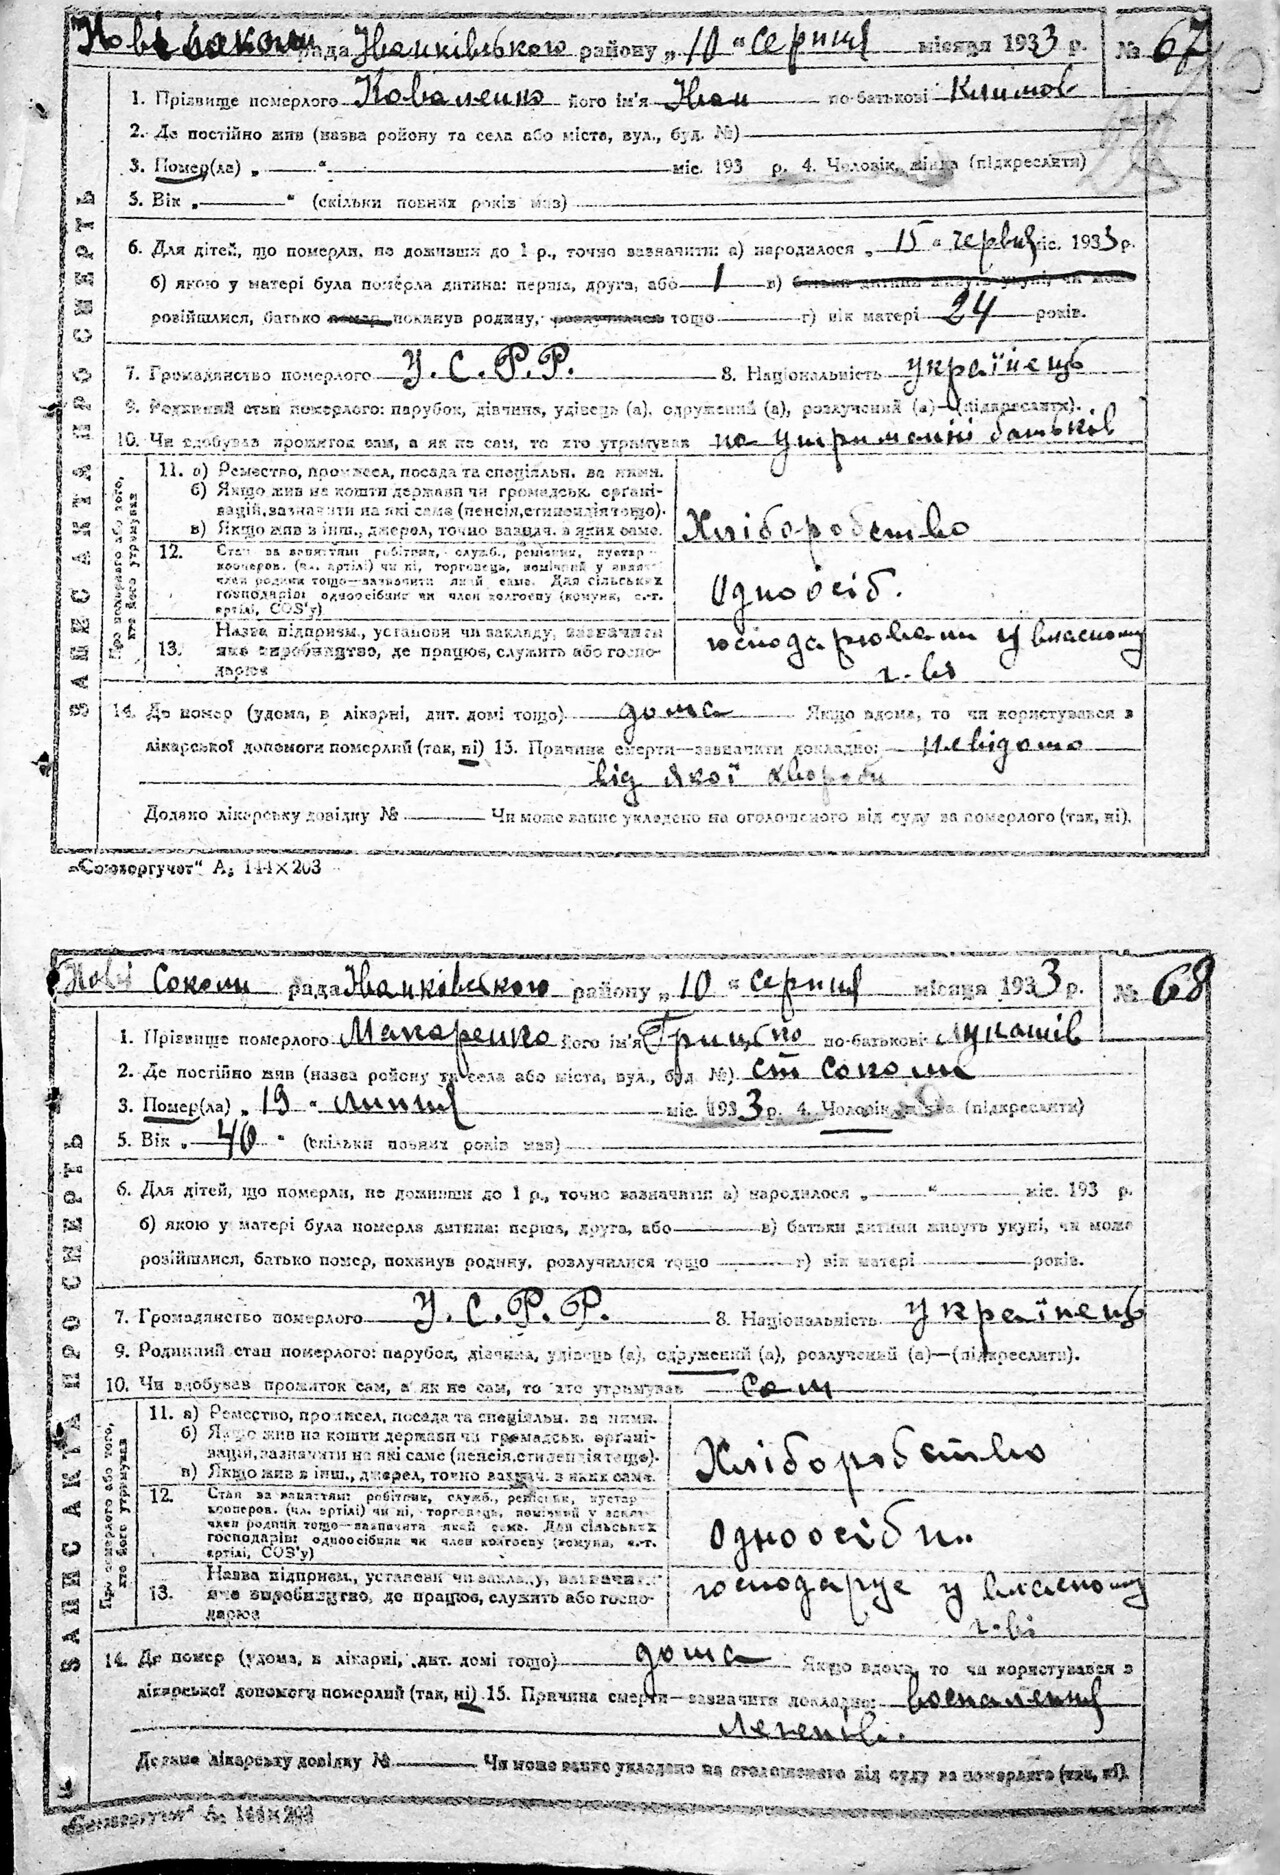 Нові Соколи рада Іванківського району „ 10 " серпня місяця 1933 р. № 67
ЗАПИС АКТА ПРО СМЕРТЬ
1. Прізвище померлого Коваленко його ім'я Іван по-батькові Климов
2. Де постійно жив (назва району та села або міста, вул., буд. №)
3. Помер(ла) „ " міс. 193 р. 4. Чоловік, жінка (підкреслити)
5. Вік „ " (скільки повних років мав)
6. Для дітей, що померли, не доживши до 1 р., точно зазначити: а) народилося „ 15 " червня міс. 1933 р.
б) якою у матері була померла дитина: перша, друга, або 1 в) батьки дитини живуть укупі, чи може
розійшлися, батько помер, покинув родину, розлучилися тощо г) вік матері 24 років.
7. Громадянство померлого У.С.Р.Р. 8. Національність українець
9. Родинний стан померлого: парубок, дівчина, удівець (а), одружений (а), розлучений (а)—(підкреслити).
10. Чи здобував прожиток сам, а як не сам, то хто утримував на утриманні батьків
Про померлого або того, хто його утримував
11. а) Ремество, промисел, посада та спеціяльн. за ними.
б) Якщо жив на кошти держави чи громадськ. органі-
зацій, зазначити на які саме (пенсія, стипендія тощо).
в) Якщо жив з інш., джерел, точно зазнач. з яких саме.
Хліборобство
12. Стан за заняттям: робітник, служб., ремісник, кустар
кооперов. (чл. артілі) чи ні, торговець,
член родини тощо—зазначити який саме. Для сільських
господарів: одноосібник чи член колгоспу (комуна, с.-г.
артілі, СОЗ'у)
Одноосіб.
13. Назва підприєм., установи чи закладу, зазначити
яке виробництво, де працює, служить або госпо-
дарює
господарювали у власному
г-ві
14. Де помер (удома, в лікарні, дит. домі тощо) дома Якщо вдома, то чи користувався з
лікарської допомоги померлий (так, ні) 15. Причина смерти—зазначити докладно: Невідомо
від якої хвороби
Додано лікарську довідку № Чи може запис укладено на оголошеного від суду за померлого (так, ні).
„Союзоргучет" А5 144×203
Нові Соколи рада Іванківського району „ 10 " серпня місяця 1933 р. № 68
ЗАПИС АКТА ПРО СМЕРТЬ
1. Прізвище померлого Макаренко його ім'я Грицько по-батькові Лукашів
2. Де постійно жив (назва району та села або міста, вул., буд. №) ст Соколи
3. Помер(ла) „ 19 " липня міс. 1933 р. 4. Чоловік, жінка (підкреслити)
5. Вік „ 40 " (скільки повних років мав)
6. Для дітей, що померли, не доживши до 1 р., точно зазначити: а) народилося „ " міс. 193 р.
б) якою у матері була померла дитина: перша, друга, або в) батьки дитини живуть укупі, чи може
розійшлися, батько помер, покинув родину, розлучилися тощо г) вік матері років.
7. Громадянство померлого У.С.Р.Р. 8. Національність українець
9. Родинний стан померлого: парубок, дівчина, удівець (а), одружений (а), розлучений (а)—(підкреслити).
10. Чи здобував прожиток сам, а як не сам, то хто утримував сам
Про померлого або того, хто його утримував
11. а) Ремество, промисел, посада та спеціяльн. за ними.
б) Якщо жив на кошти держави чи громадськ. органі-
зацій, зазначити на які саме (пенсія, стипендія тощо).
в) Якщо жив з інш., джерел, точно зазнач. з яких саме.
Хліборобство
12. Стан за заняттям: робітник, служб., ремісник, кустар
кооперов. (чл. артілі) чи ні, торговець,
член родини тощо—зазначити який саме. Для сільських
господарів: одноосібник чи член колгоспу (комуна, с.-г.
артілі, СОЗ'у)
Одноосібн.
13. Назва підприєм., установи чи закладу, зазначити
яке виробництво, де працює, служить або госпо-
дарює
господарує у власному
г-ві
14. Де помер (удома, в лікарні, дит. домі тощо) дома Якщо вдома, то чи користувався з
лікарської допомоги померлий (так, ні) 15. Причина смерти—зазначити докладно: воспаления
легенів.
Додано лікарську довідку № Чи може запис укладено на оголошеного від суду за померлого (так, ні).
„Союзоргучет" А5 144×203